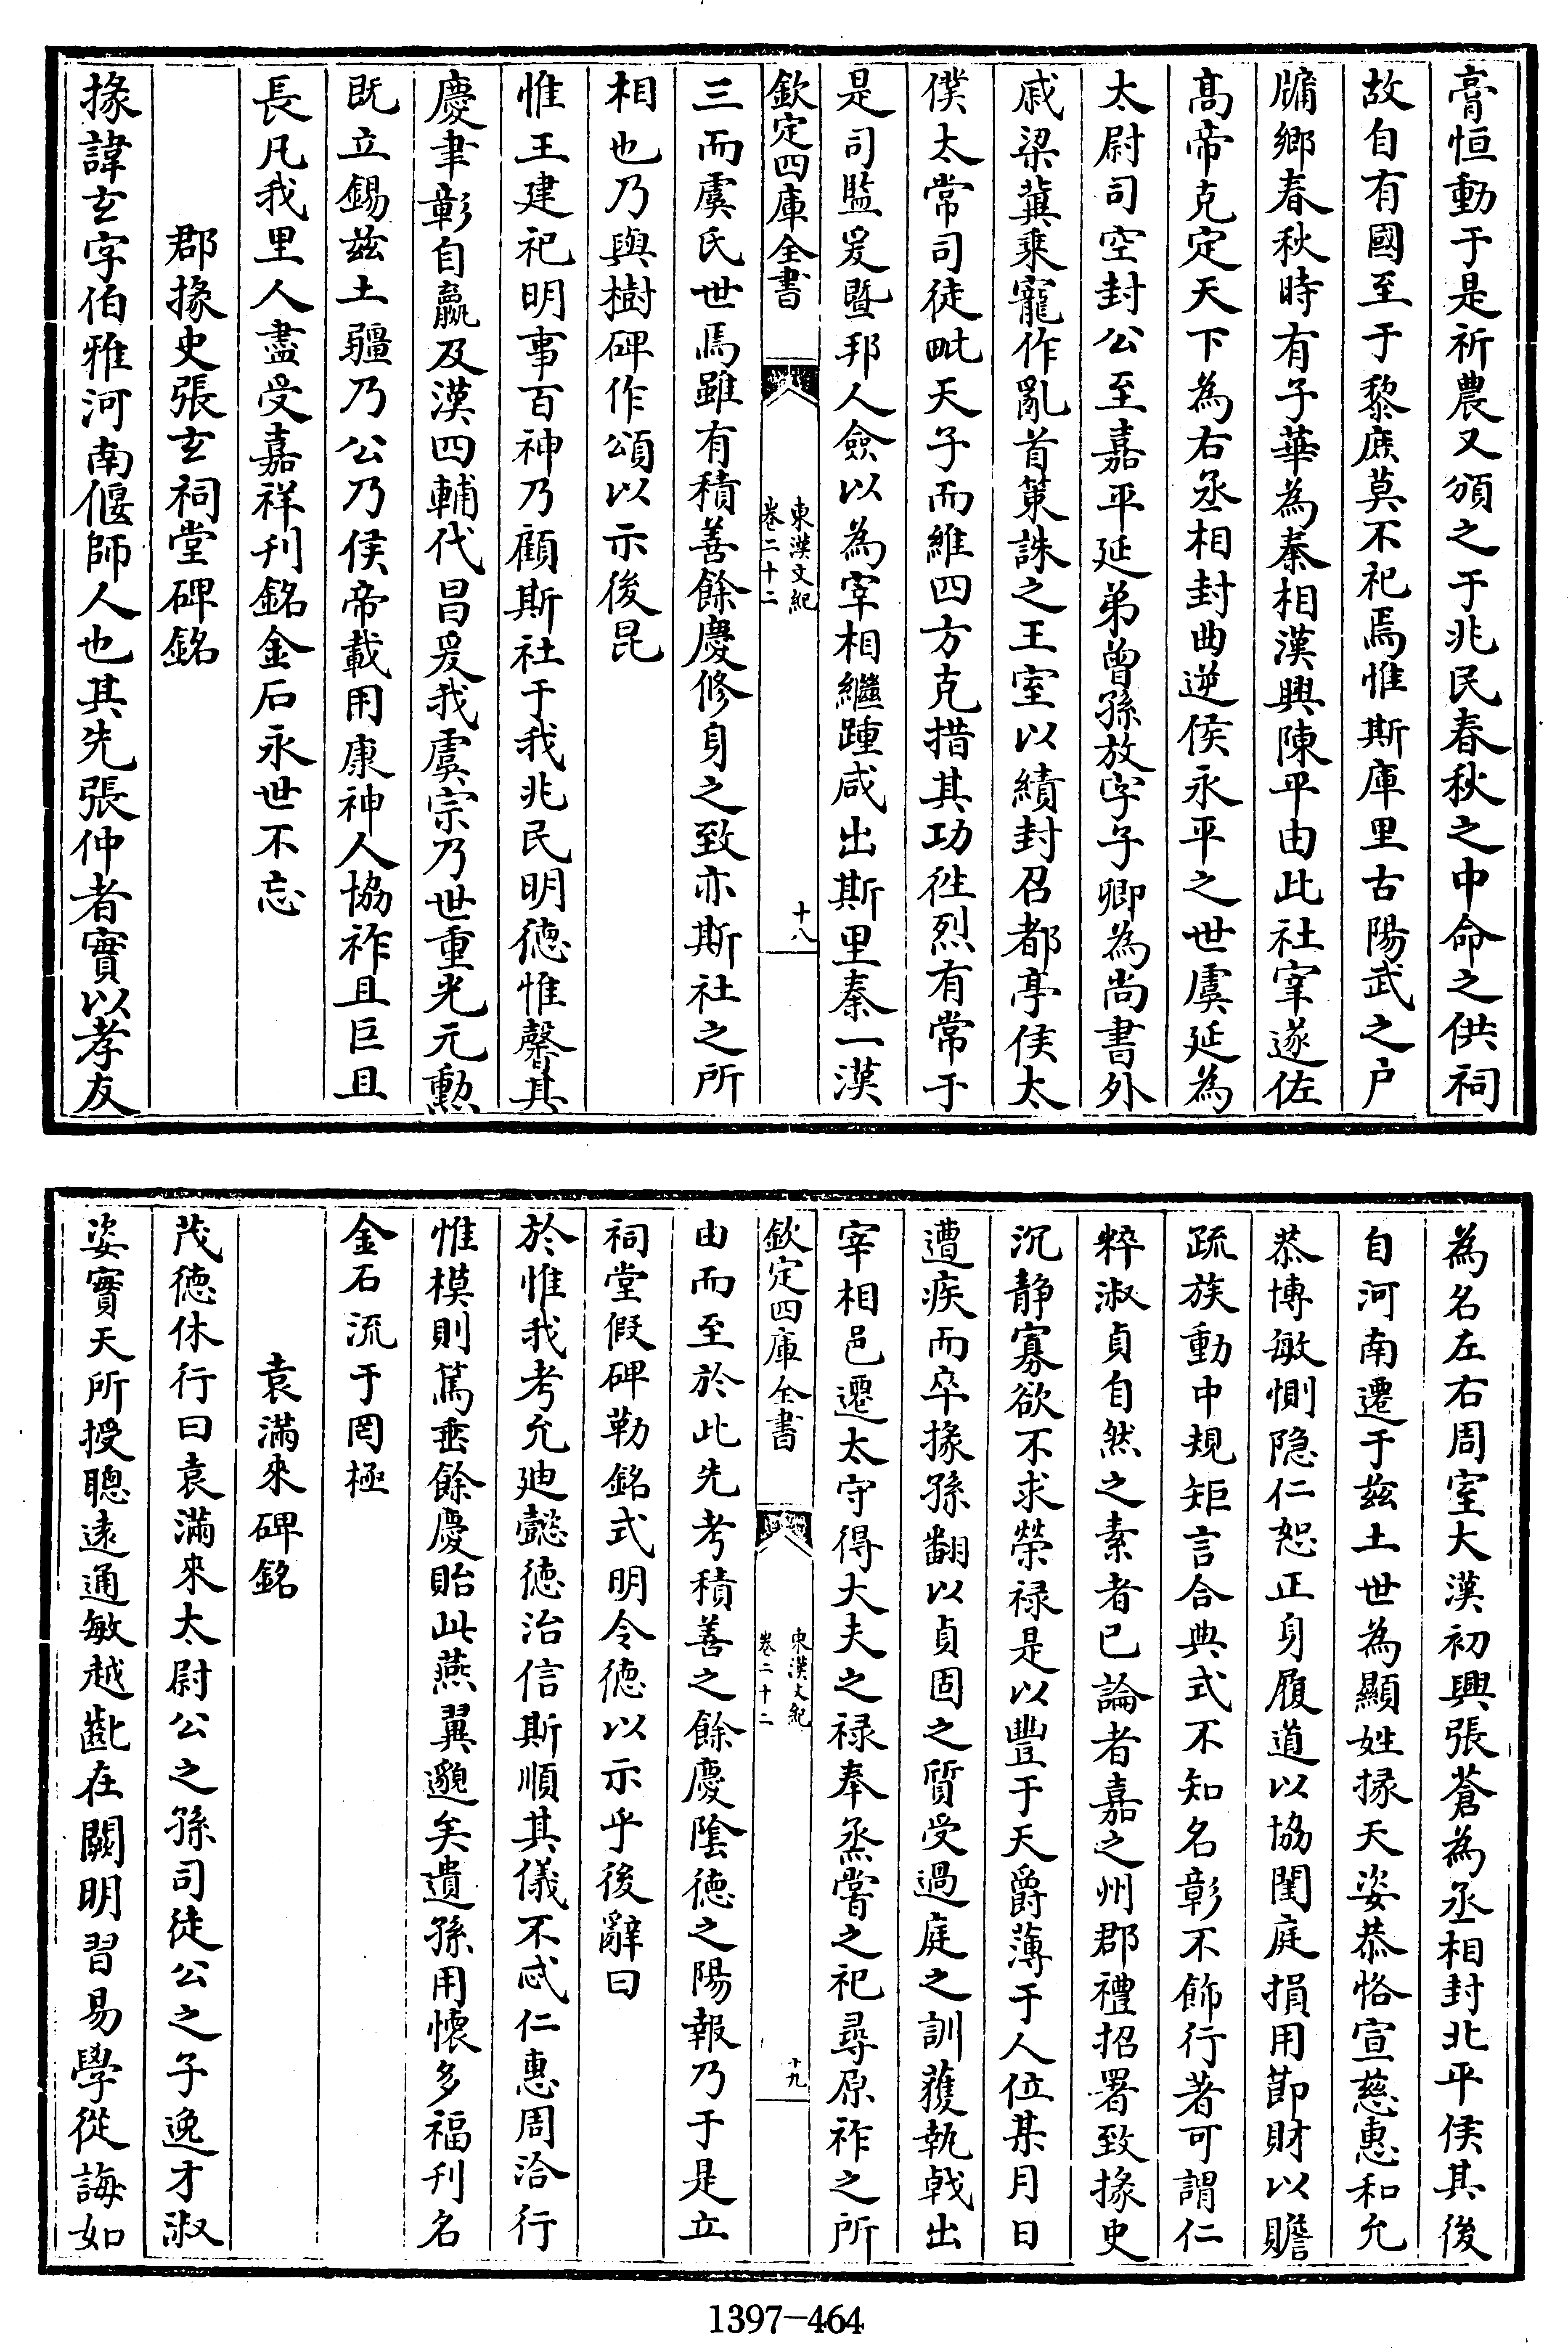 膏恒動于是祈農又頒之于兆民春秋之中命之供祠
故自有國至于黎庶莫不祀焉惟斯庫里古陽武之户
牖鄉春秋時有子華為秦相漢興陳平由此社宰遂佐
髙帝克定天下為右丞相封曲逆侯永平之世虞延為
太尉司空封公至嘉平延弟曾孫放字子卿為尚書外
戚梁冀乘寵作亂首策誅之王室以績封召都亭侯太
僕太常司徒毗天子而維四方克措其功徃烈有常于
是司監爰暨邦人僉以為宰相繼踵咸出斯里秦一漢
欽定四庫全書
東漢文紀
卷二十二
十八
三而虞氏世焉雖有積善餘慶修身之致亦斯社之所
相也乃與樹碑作頌以示後昆
惟王建祀明事百神乃顧斯社于我兆民明德惟馨其
慶聿彰自嬴及漢四輔代昌爰我虞宗乃世重光元勲
既立錫兹土疆乃公乃侯帝載用康神人協祚且巨且
長凡我里人盡受嘉祥刋銘金石永世不忘
郡掾史張玄祠堂碑銘
掾諱玄字伯雅河南偃師人也其先張仲者實以孝友
為名左右周室大漢初興張蒼為丞相封北平侯其後
自河南遷于兹土世為顯姓掾天姿恭恪宣慈惠和允
恭博敏惻隠仁恕正身履道以協閨庭捐用節財以贍
疏族動中規矩言合典式不知名彰不飾行著可謂仁
粹淑貞自然之素者已論者嘉之州郡禮招署致掾史
沉静寡欲不求榮禄是以豐于天爵薄于人位某月日
遭疾而卒掾孫翻以貞固之質受過庭之訓獲執戟出
宰相邑遷太守得大夫之禄奉烝嘗之祀尋原祚之所
欽定四庫全書
東漢文紀
卷二十二
十九
由而至於此先考積善之餘慶隂德之陽報乃于是立
祠堂假碑勒銘式明令德以示乎後辭曰
於惟我考允廸懿德治信斯順其儀不忒仁惠周洽行
惟模則篤垂餘慶貽此燕翼邈矣遺孫用懷多福刋名
金石流于罔極
袁滿來碑銘
茂德休行曰袁滿來太尉公之孫司徒公之子逸才淑
姿實天所授聰逺通敏越齔在闕明習易學從誨如
1397-464